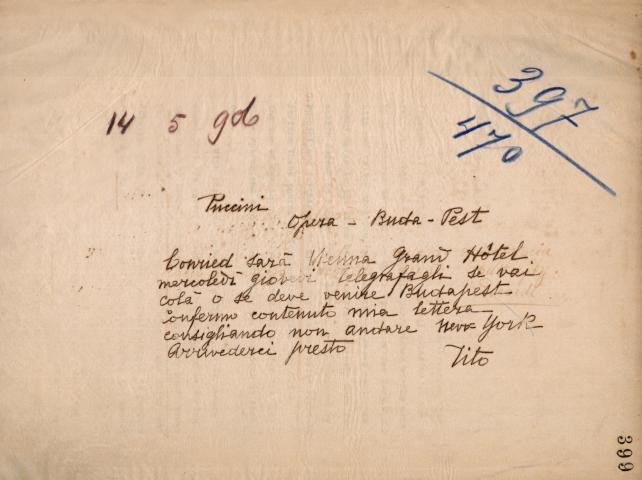 397
470
14 5 906
Puccini
Opera - Buda - Pest
Conried sarà Vienna Grand Hôtel
mercoledì giovedì telegrafagli se vai
colà o se deve venire Budapest
Confermo contenuto mia lettera
consigliando non andare New York
Arrivederci presto
Tito
399